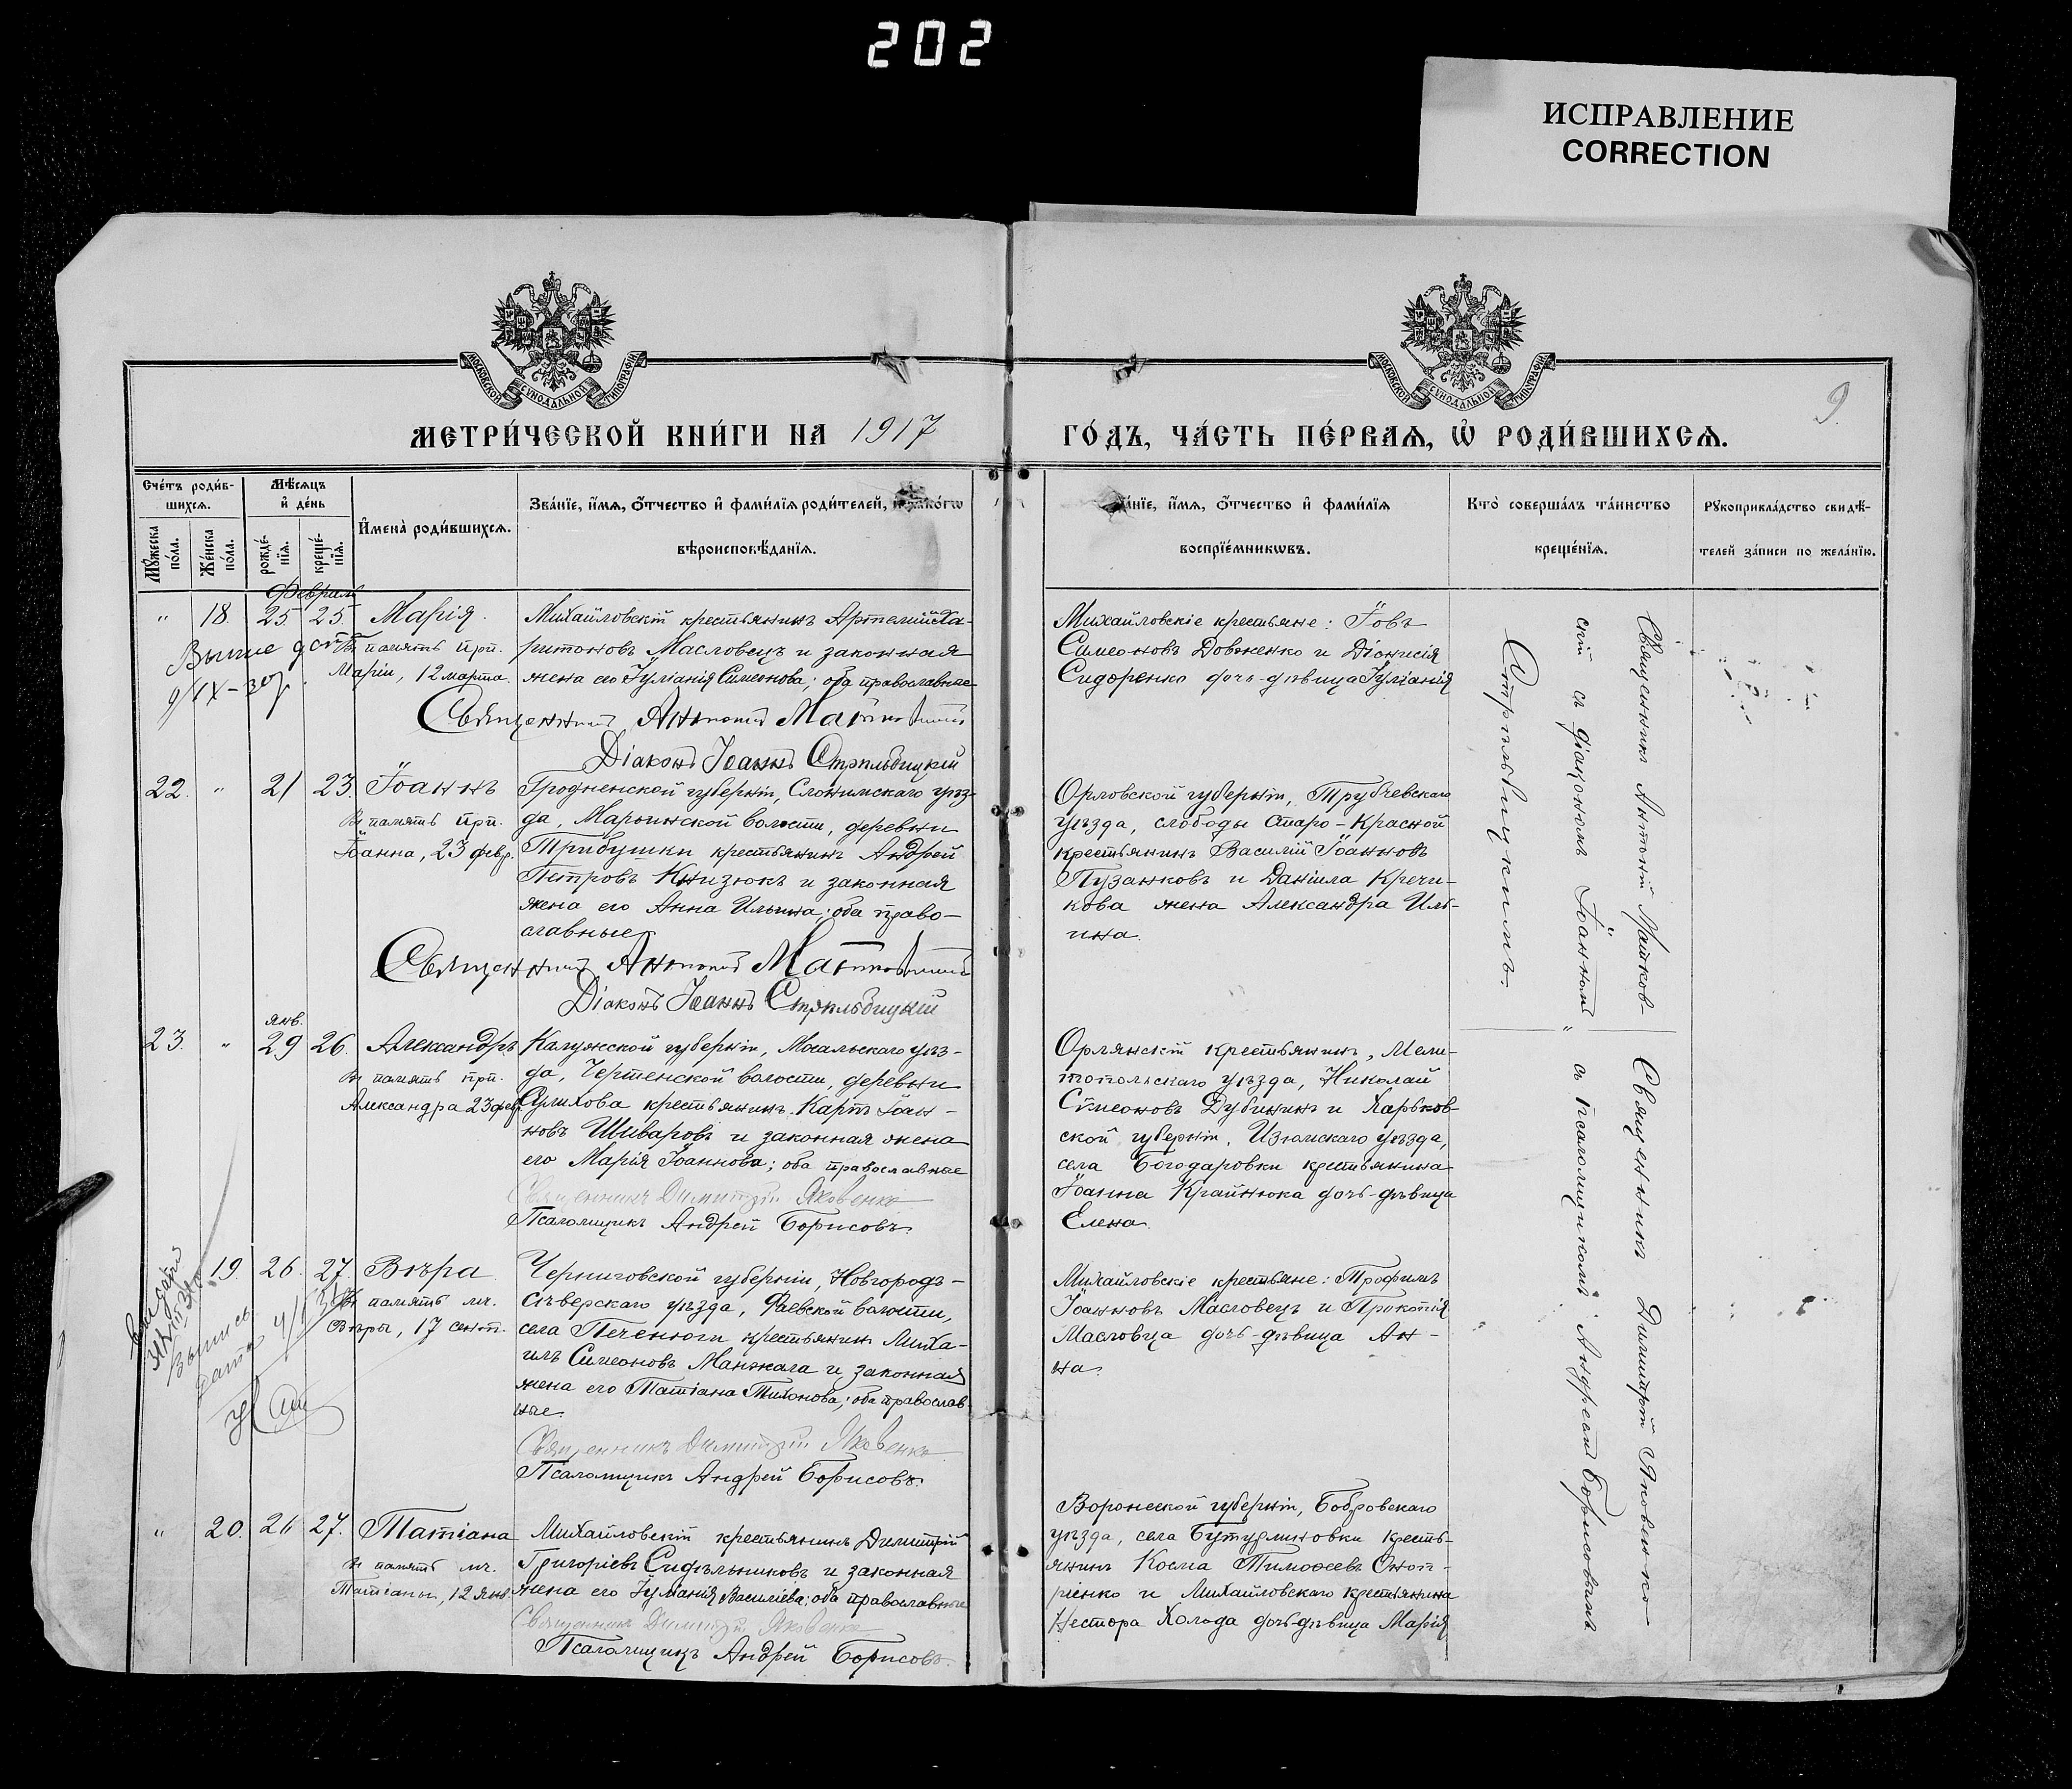 202
ИСПРАВЛЕНИЕ
CORRECTION
МОСКОВСКОЙ СѴНОДАЛЬНОЙ ТИПОГРАФІИ
МОСКОВСКОЙ СѴНОДАЛЬНОЙ ТИПОГРАФІИ
9.
МЕТРИ́ЧЕСКОЙ КНИ́ГИ НА 1917
ГО́ДЪ, ЧА́СТЬ ПЕ́РВАЯ, Ѿ РОДИ́ВШИХСЯ.
Сче́тъ роди́в-
шихся.
Му́жеска по́ла.
Же́нска по́ла.
Мѣ́сяцъ
и҆ де́нь
рожде́-
нїя.
креще́-
нїя.
И҆мена̀ роди́вшихся.
Зва́нїе, и҆́мя, о҆́тчество и҆ фами́лїя роди́телей,
вѣроисповѣ́данїя.
и҆́мя, о҆́тчество и҆ фами́лїя
воспрїе́мникωвъ.
Кто̀ соверша́лъ та́инство
креще́нїя.
Рꙋкоприкла́дство свидѣ́-
телей за́писи по жела́нїю.
Февраль
" 18. 25 25 Марія.
въ память прп.
Маріи, 12 марта.
9/IX-30г.
Михайловскій крестьянинъ Артемій Ха-
ритоновъ Масловецъ и законная
жена его Іуліанія Симеонова; оба православные
Священникъ Антоній Матковскій
Діаконъ Іоаннъ Стрѣльбицкій
Михайловскіе крестьяне: Іовъ
Симеоновъ Довженко и Діонисія
Сидоренко дочь-дѣвица Іуліанія
22. " 21 23. Іоаннъ
Въ память прп.
Іоанна, 23 февр.
Гродненской губерніи, Слонимскаго уѣз-
да, Марьинской волости, деревни
Трибушки крестьянинъ Андрей
Петровъ Книзюкъ и законная
жена его Анна Ильина; оба право-
славные
Священникъ Антоній Матковскій
Діаконъ Іоаннъ Стрѣльбицкій
Орловской губерніи, Трубчевскаго
уѣзда, слободы Старо-Красной
крестьянинъ Василій Іоанновъ
Пузанковъ и Даніила Кречи-
кова жена Александра Иль-
ина.
янв.
23. " 29 26. Александръ
Въ память прп.
Александра 23 фев.
Калужской губерніи, Мосальскаго уѣз-
да, Чертенской волости, деревни
Сулихова крестьянинъ Карпъ Іоан-
новъ Шиваровъ и законная жена
его Марія Іоаннова; оба православные
Священникъ Димитрій Яковенко
Псаломщикъ Андрей Борисовъ.
Орлянскій крестьянинъ, Мели-
топольскаго уѣзда, Николай
Симеоновъ Дубининъ и Харьков-
ской губерніи, Изюмскаго уѣзда,
села Богодаровки крестьянина
Іоанна Крайнюка дочь-дѣвица
Елена.
19. 26. 27. Вѣра
Въ память мч.
Вѣры, 17 сент.
Черниговской губерніи, Новгородъ-
сѣверскаго уѣзда, Фаевской волости,
села Печенюги крестьянинъ Миха-
илъ Симеоновъ Манжала и законная
жена его Татіана Тихонова; оба православ-
ные.
Священникъ Димитрій Яковенко
Псаломщикъ Андрей Борисовъ.
Михайловскіе крестьяне: Трофимъ
Іоанновъ Масловецъ и Прокопія
Масловца дочь-дѣвица Ан-
на.
" 20. 26 27. Татіана
въ память мч.
Татіаны, 12 янв.
Михайловскій крестьянинъ Димитрій
Григоріевъ Сидѣльниковъ и законная
жена его Іуліанія Василіева; оба православные
Священникъ Димитрій Яковенко
Псаломщикъ Андрей Борисовъ.
Воронежской губерніи, Бобровскаго
уѣзда, села Бутурлиновки кресть-
янинъ Косма Тимофеевъ Оноп-
ріенко и Михайловскаго крестьянина
Нестора Холода дочь-дѣвица Марія
Священникъ Антоній Матков-
скій съ діакономъ Іоанномъ
Стрѣльбицкимъ.
Священникъ Димитрій Яковенко
съ псаломщикомъ Андреемъ Борисовымъ